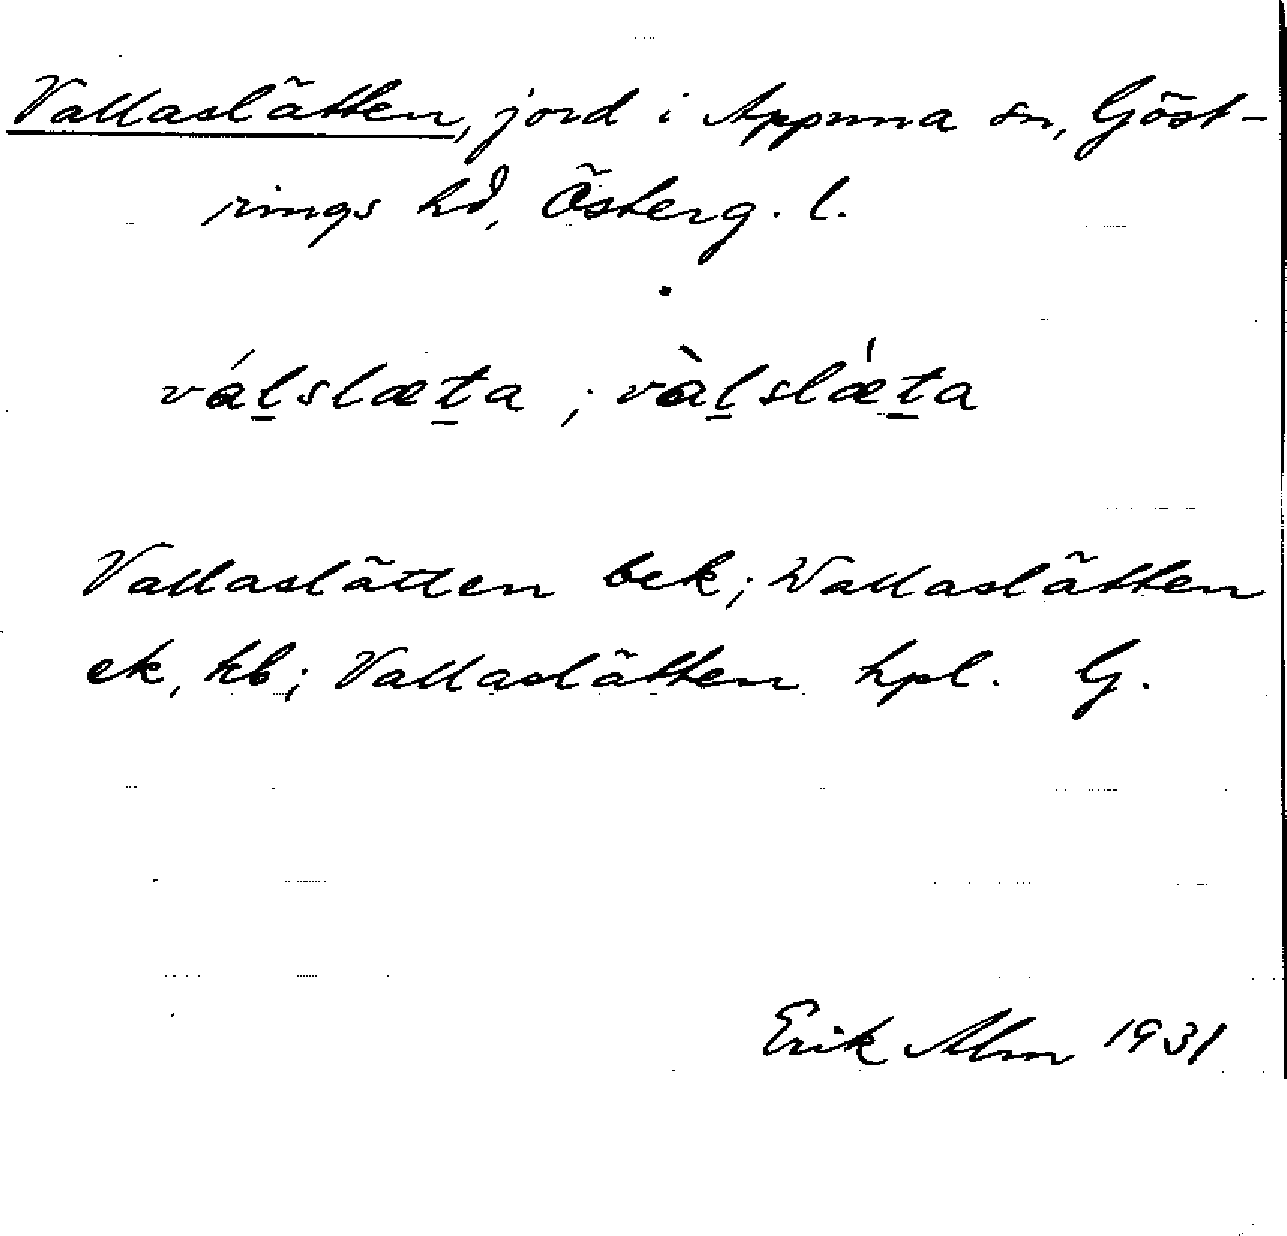 Vallaslätten, jord i Appuna sn, Göst-
rings hd, Österg. l.
vál̲slæt̲a ; vàl̲slǽt̲a
Vallaslätten bek; Wallaslätten
ek, kb; Vallaslätten hpl. G.
Erik Alm 1931